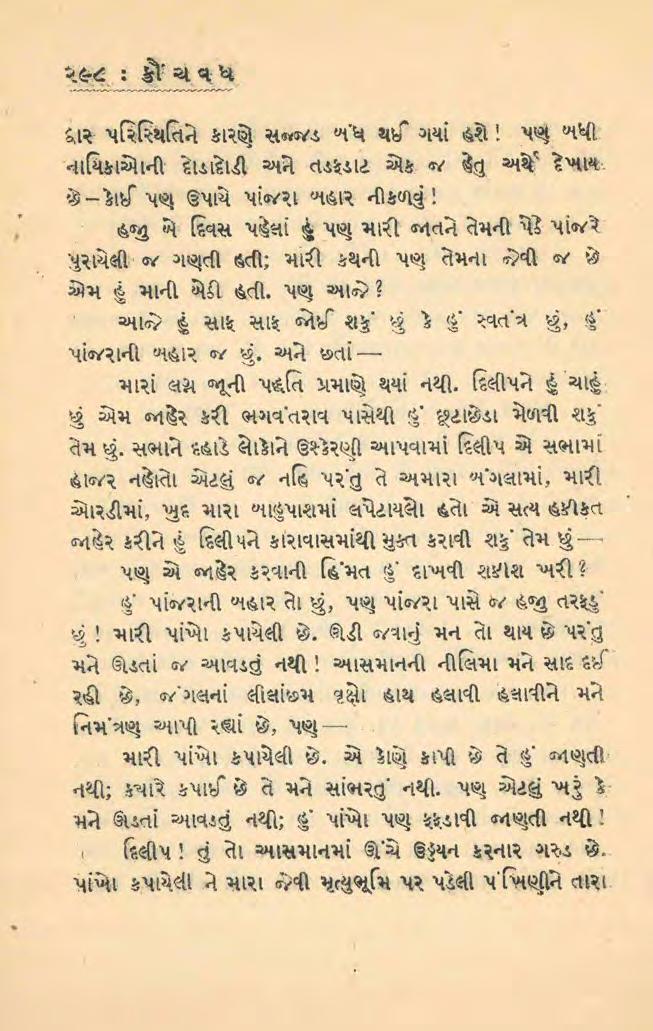 ૨૯૮ : ક્રૌંચવધ
દ્વાર પરિસ્થિતિને કારણે સજ્જડ બંધ થઈ ગયાં હશે! પણ બધી
નાયિકાઓની દોડાદોડી અને તડફડાટ એક જ હેતુ અર્થે દેખાય
છે – કોઈ પણ ઉપાયે પાંજરા બહાર નીકળવું!
હજુ બે દિવસ પહેલાં હું પણ મારી જાતને તેમની પેઠે પાંજરે
પુરાયેલી જ ગણતી હતી; મારી કથની પણ તેમના જેવી જ છે
એમ હું માની બેઠી હતી. પણ આજે?
આજે હું સાફ સાફ જોઈ શકું છું કે હું સ્વતંત્ર છું, હું
પાંજરાની બહાર જ છું. અને છતાં —
મારાં લગ્ન જૂની પદ્ધતિ પ્રમાણે થયાં નથી. દિલીપને હું ચાહું
છું એમ જાહેર કરી ભગવંતરાવ પાસેથી હું છૂટાછેડા મેળવી શકું
તેમ છું. સભાને દહાડે લોકોને ઉશ્કેરણી આપવામાં દિલીપ એ સભામાં
હાજર નહોતો એટલું જ નહિ પરંતુ તે અમારા બંગલામાં, મારી
ઓરડીમાં, ખુદ મારા બાહુપાશમાં લપેટાયલો હતો એ સત્ય હકીકત
જાહેર કરીને હું દિલીપને કારાવાસમાંથી મુક્ત કરાવી શકું તેમ છું —
પણ એ જાહેર કરવાની હિંમત હું દાખવી શકીશ ખરી?
હું પાંજરાની બહાર તો છું, પણ પાંજરા પાસે જ હજુ તરફડું
છું! મારી પાંખો કપાયેલી છે. ઊડી જવાનું મન તો થાય છે પરંતુ
મને ઊડતાં જ આવડતું નથી! આસમાનની નીલિમા મને સાદ દઈ
રહી છે, જંગલનાં લીલાંછમ વૃક્ષો હાથ હલાવી હલાવીને મને
નિમંત્રણ આપી રહ્યાં છે, પણ —
મારી પાંખો કપાયેલી છે. એ કોણે કાપી છે તે હું જાણતી
નથી; ક્યારે કપાઈ છે તે મને સાંભરતું નથી. પણ એટલું ખરું કે
મને ઊડતાં આવડતું નથી; હું પાંખો પણ ફફડાવી જાણતી નથી!
દિલીપ! તું તો આસમાનમાં ઊંચે ઉડ્ડયન કરનાર ગરુડ છે.
પાંખો કપાયેલી ને મારા જેવી મૃત્યુભૂમિ પર પડેલી પંખિણીને તારા